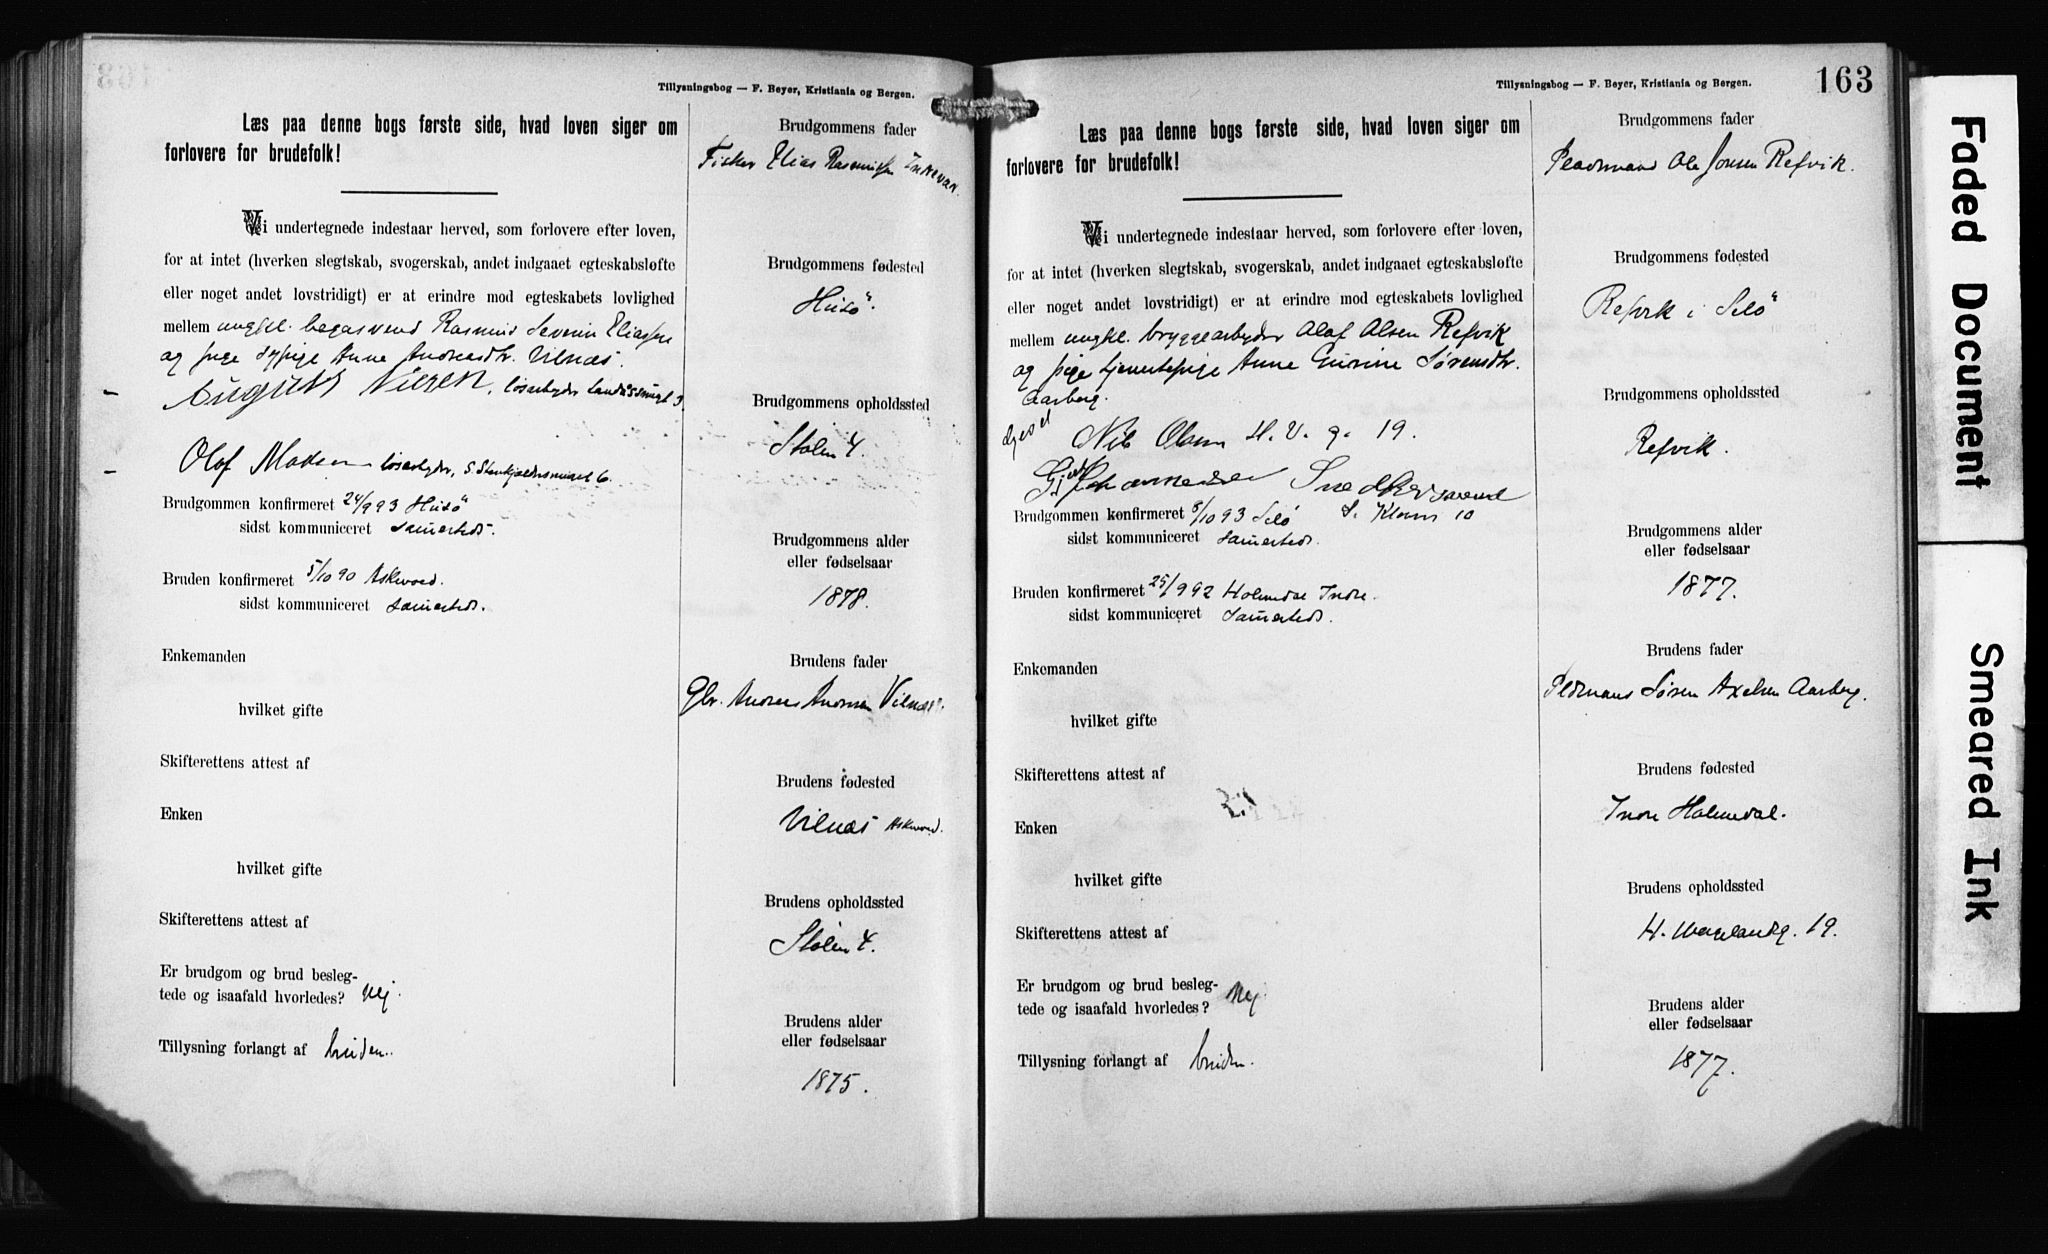 Tillysningsbog — F. Beyer, Kristiania og Bergen.
Læs paa denne bogs første side, hvad loven siger om
forlovere for brudefolk!
Vi undertegnede indestaar herved, som forlovere efter loven,
for at intet (hverken slegtskab, svogerskab, andet indgaaet egteskabsløfte
eller noget andet lovstridigt) er at erindre mod egteskabets lovlighed
mellem ungkl. Rasmus Severin Eliassen
og pige sypige Anne Andreasdtr. Vilnæs.
August Nilsen, løsarbejder
Olaf Madsen løsarbejder, 6.
Brudgommen konfirmeret 24/9 93 Husö
sidst kommuniceret sammesteds.
Bruden konfirmeret 5/10 90 Askvoed.
sidst kommuniceret sammesteds.
Enkemanden
hvilket gifte
Skifterettens attest af
Enken
hvilket gifte
Skifterettens attest af
Er brudgom og brud besleg-
tede og isaafald hvorledes? Nej.
Tillysning forlangt af bruden.
Brudgommens fader
Fisker Elias Rasmussen
Brudgommens fødested
Husö.
Brudgommens opholdssted
Stølen 4.
Brudgommens alder
eller fødselsaar
1878.
Brudens fader
Gbr. Andreas Andersen Vilnæs.
Brudens fødested
Vilnæs Askvoed.
Brudens opholdssted
Stølen 4.
Brudens alder
eller fødselsaar
1875.
Tillysningsbog — F. Beyer, Kristiania og Bergen.
163
Læs paa denne bogs første side, hvad loven siger om
forlovere for brudefolk!
Vi undertegnede indestaar herved, som forlovere efter loven,
for at intet (hverken slegtskab, svogerskab, andet indgaaet egteskabsløfte
eller noget andet lovstridigt) er at erindre mod egteskabets lovlighed
mellem ungkl. bryggearbejder Olaf Olsen Refvik
og pige tjenestepige Anne Gurine Sørensdtr.
Aarberg.
Nils Olsen H. V. g. 19.
Johannesen Snedkersvend
Brudgommen konfirmeret 8/10 93 Selö
10
sidst kommuniceret sammesteds.
Bruden konfirmeret 25/9 92 Holmedal Indre.
sidst kommuniceret sammesteds.
Enkemanden
hvilket gifte
Skifterettens attest af
Enken
hvilket gifte
Skifterettens attest af
Er brudgom og brud besleg-
tede og isaafald hvorledes? Nej.
Tillysning forlangt af bruden.
Brudgommens fader
Pladsmand Ole Jonsen Refvik.
Brudgommens fødested
Refvik i Selö
Brudgommens opholdssted
Refvik.
Brudgommens alder
eller fødselsaar
1877.
Brudens fader
Pldmand Søren Axelsen Aarberg.
Brudens fødested
Indre Holmedal.
Brudens opholdssted
H. Wergelandsg. 19.
Brudens alder
eller fødselsaar
1877.
Faded Document
Smeared Ink